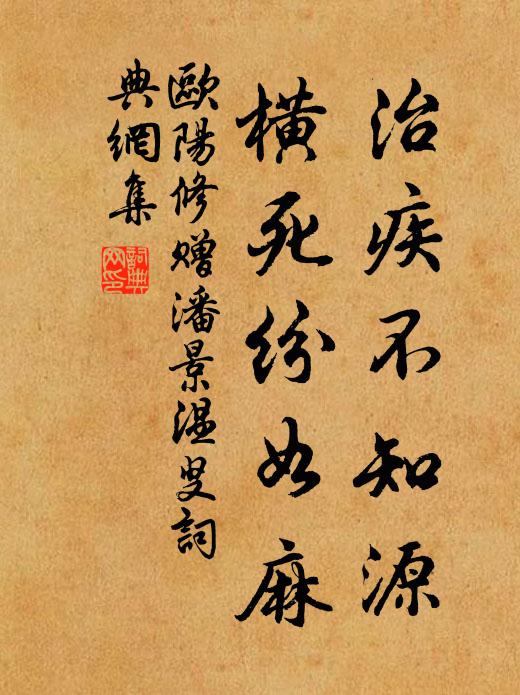 治疾不知源
橫死紛如麻
歐陽修贈潘景溫叟詞
典網集
詞典網印